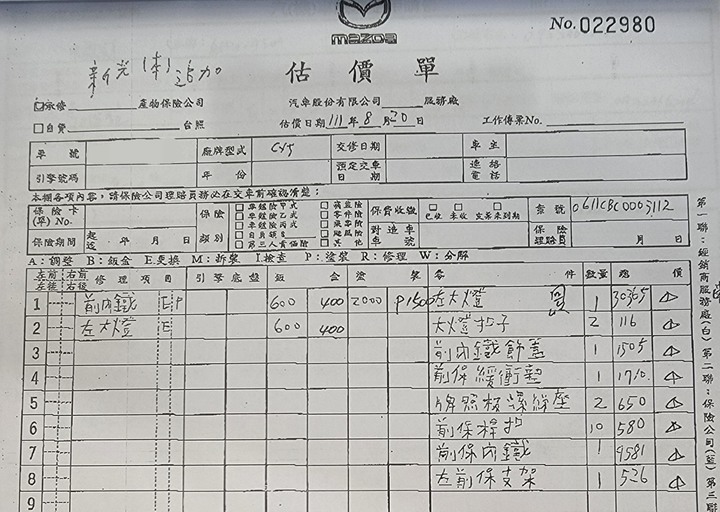 mazda
No. 022980
新光(車)追加
估價單
承修 產物保險公司 汽車股份有限公司 服務廠
自費 台照 估價日期 111 年 8 月 30 日 工作傳票No.
車號 廠牌型式 CX5 交修日期 車主
引擎號碼 年份 預定交車日期 連絡電話
本欄各項內容,請保險公司理賠員務必在交車前確認清楚:
保險卡(單)No. 保險類別 車體險甲式 車體險乙式 車體險丙式 自負額 第三人責任險 竊盜險 零件險 其他 保費收訖 已收 未收 交車來到期 案號 0611CBC0003112
保險期間 起迄 年 月 日 對造車車號 保險理賠員 月 日
A:調整 B:鈑金 E.更換 M:拆裝 I.檢查 P:塗裝 R:修理 W:分解
左前 右前 左後 右後 修理項目 引擎底盤 鈑金 塗裝 零件 數量 總價
1 前內鐵 E P 600 400 2000 P1500 左大燈 1 30365
2 左大燈 E 600 400 大燈扣子 2 116
3 前內鐵飾蓋 1 1505
4 前保緩衝墊 1 1710
5 牌照板螺絲座 2 650
6 前保桿扣 10 580
7 前保內鐵 1 9581
8 左前保支架 1 526
9
第一聯:經銷商服務廠(白) 第二聯:保險公司(藍) 第三聯